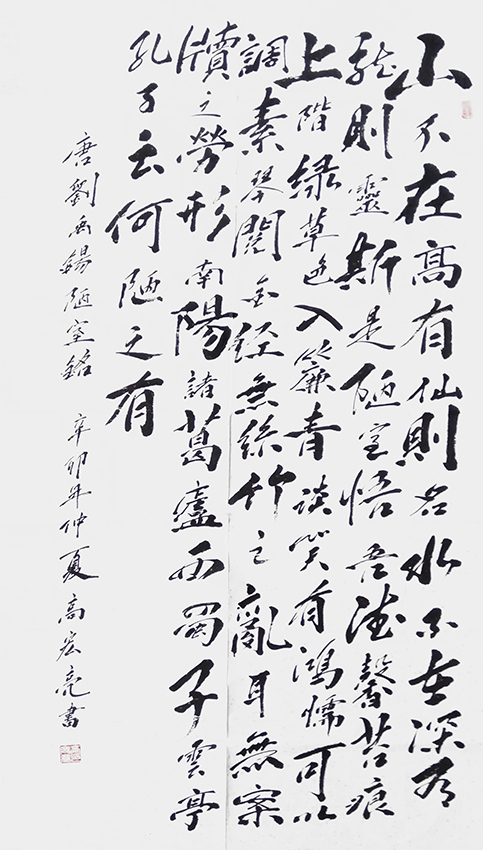 山不在高有仙則名水不在深有
龍則靈斯是陋室悟吾德馨苔痕
上階緑草色入簾青談笑有鴻儒可以
調素琴閱金經無絲竹之亂耳無案
牘之勞形南陽諸葛廬西蜀子雲亭
孔子云何陋之有
唐劉禹錫陋室銘 辛卯年仲夏高宏亮書